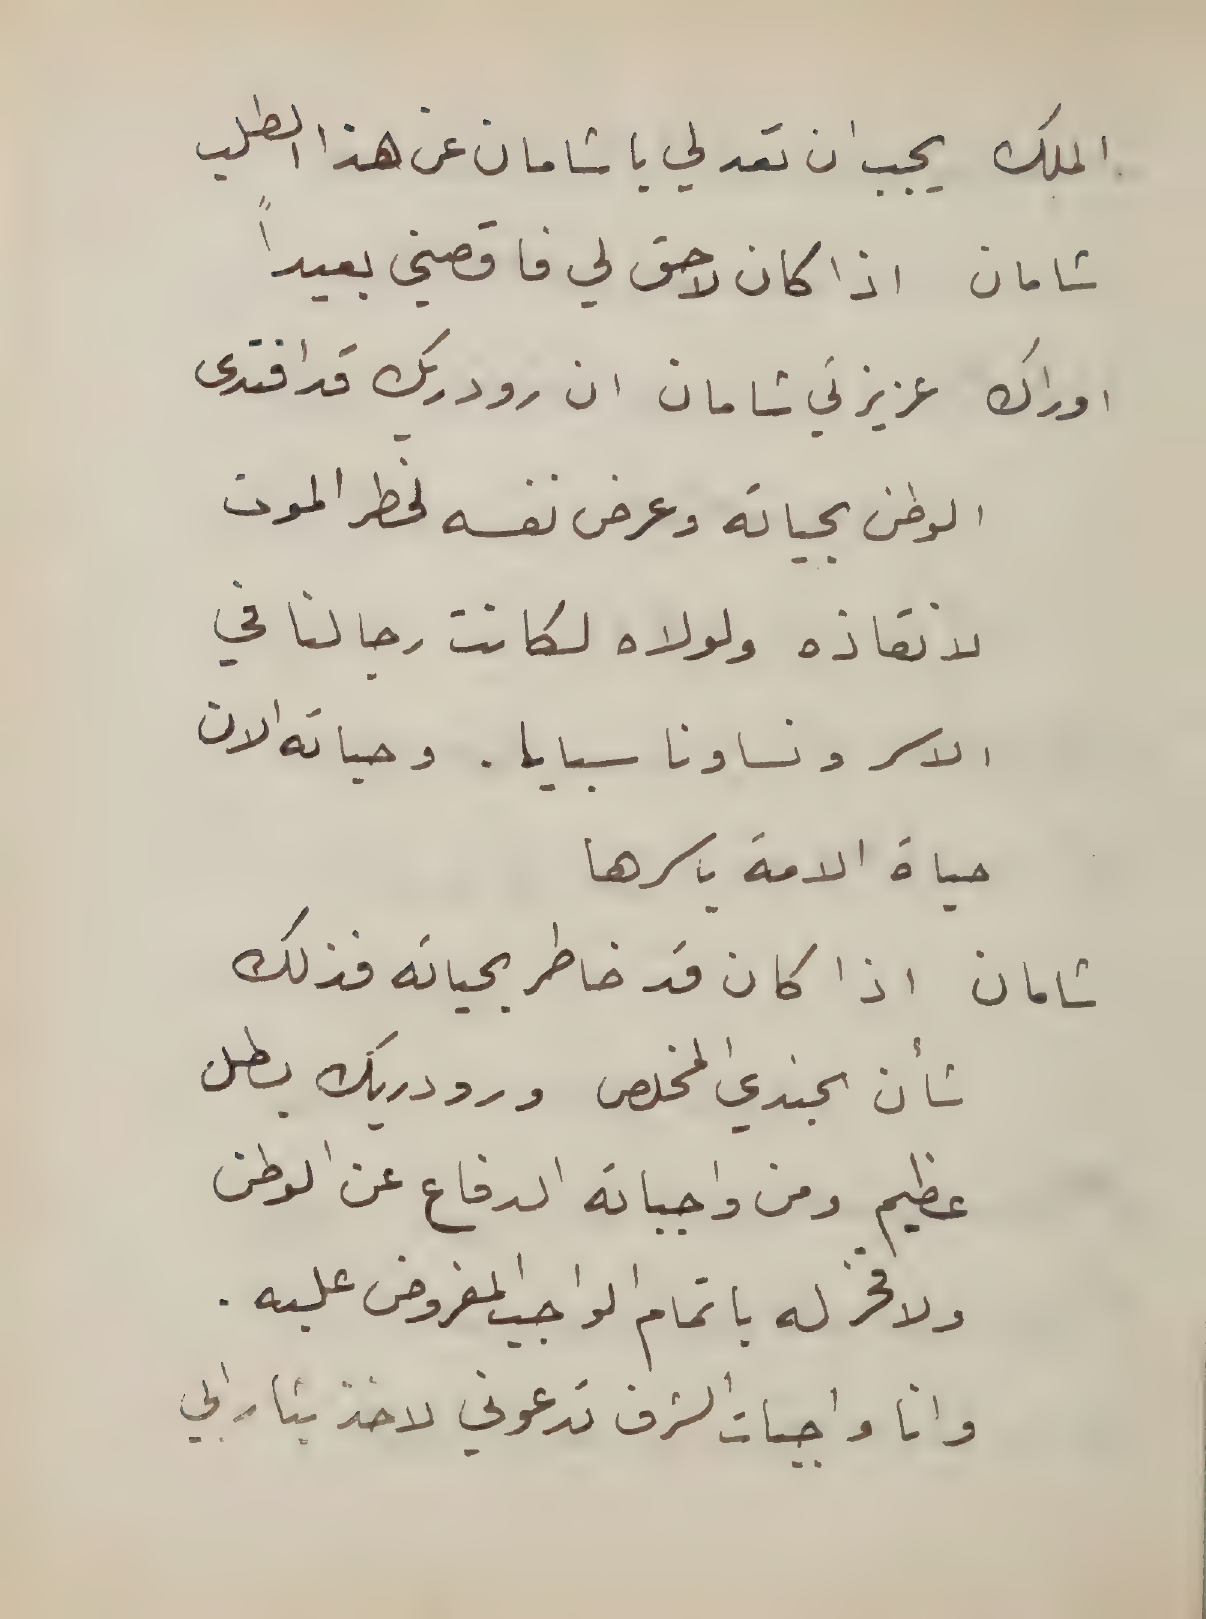 الملك يجب ان تعدلي يا شامان عن هذا الطلب
شامان اذا كان لاحق لي فاقصني بعيداً
اوراك عزيزتي شامان ان رودريك قد افتدى
الوطن بحياته وعرض نفسه لخطر الموت
لانقاذه ولولاه لكانت رجالنا في
الاسر ونساونا سبايا . وحياته الان
حياة الامة باسرها
شامان اذا كان قد خاطر بحياته فذلك
شأن الجندي المخلص ورودريك بطل
عظيم ومن واجباته الدفاع عن الوطن
ولا فخر له باتمام الواجب المفروض عليه .
وانا واجبات الشرف تدعوني لاخذ بثار ابي